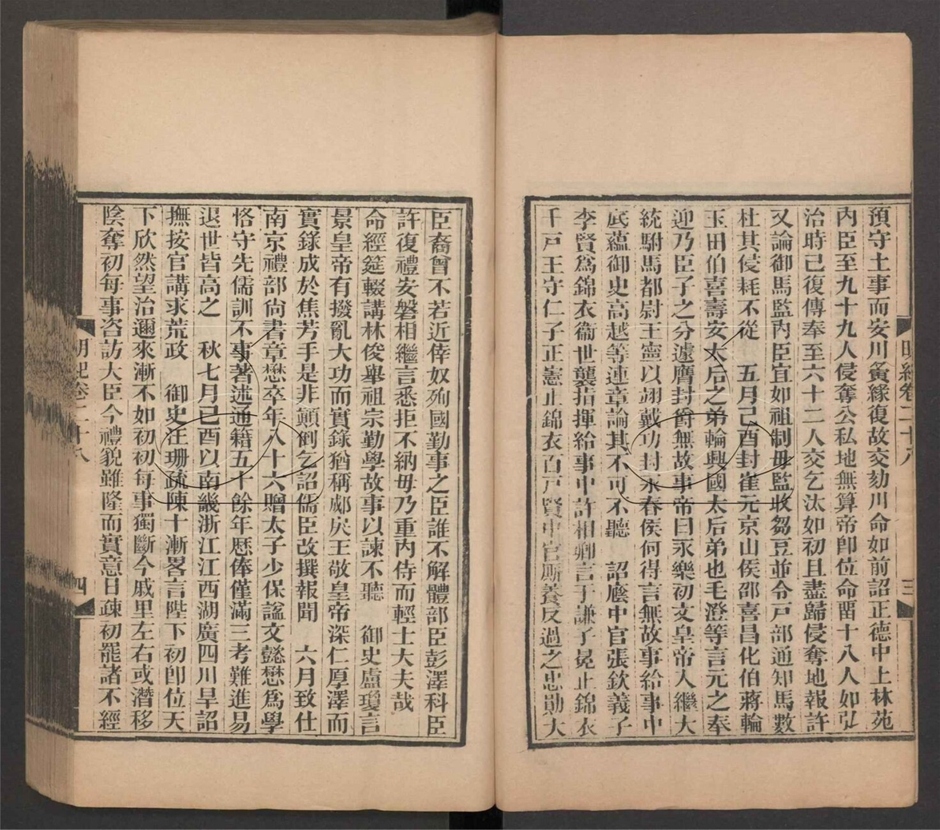 預守土事而安川夤緣復故交劾川命如前詔正德中上林苑
內臣至九十九人侵奪公私地無算帝卽位命畱十八人如弘
治時已復傳奉至六十二人交乞汰如初且盡歸侵奪地報許
又論御馬監內臣宜如祖制毋監收芻豆並令戶部通知馬數
杜其侵耗不從　五月己酉封崔元京山侯邵喜昌化伯蔣輪
玉田伯喜壽安太后之弟輪興國太后弟也毛澄等言元之奉
迎乃臣子之分遽膺封爵無故事帝曰永樂初文皇帝入繼大
統駙馬都尉王寧以翊戴功封永春侯何得言無故事給事中
底蘊御史高越等連章論其不可不聽　詔廕中官張欽義子
李賢爲錦衣衞世襲指揮給事中許相卿言于謙子冕止錦衣
千戶王守仁子正憲止錦衣百戶賢中官廝養反過之忠勛大
明紀卷二十八
三
臣裔曾不若近倖奴殉國勤事之臣誰不解體部臣彭澤科臣
許復禮安磐相繼言悉拒不納毋乃重內侍而輕士大夫哉
命經筵輟講林俊舉祖宗勤學故事以諫不聽　御史盧瓊言
景皇帝有撥亂大功而實錄猶稱郕戾王敬皇帝深仁厚澤而
實錄成於焦芳手是非顚倒乞詔儒臣改撰報聞　六月致仕
南京禮部尙書章懋卒年八十六贈太子少保諡文懿懋爲學
恪守先儒訓不事著述通籍五十餘年歷俸僅滿三考難進易
退世皆高之　秋七月己酉以南畿浙江江西湖廣四川旱詔
撫按官講求荒政　御史汪珊疏陳十漸畧言陛下初卽位天
下欣然望治邇來漸不如初初每事獨斷今戚里左右或潛移
陰奪初每事咨訪大臣今禮貌雖隆而實意日疎初罷諸不經
明紀卷二十八
四